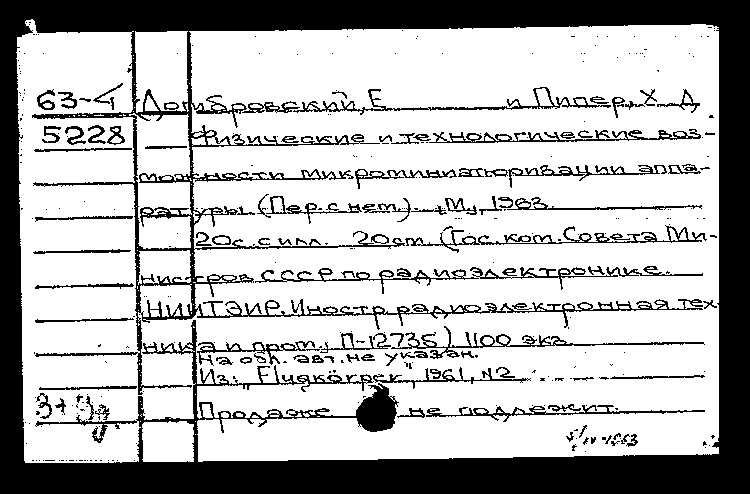 63-4 Домбровский, Е и Пипер, Х Д
5228 Физические и технологические воз-
можности микроминиатюризации аппа-
ратуры (Пер. с нем.). „М„, 1963.
20с. с илл. 20см. (Гос. ком. Совета Ми-
нистров СССР по радиоэлектронике.
НИИТЭИР. Иностр радиоэлектронная тех-
ника и пром.; П-12735) 1100 экз
На обл. авт. не указан.
Из: „Flugkörper„, 1961, N2
3+3д. Продаже не подлежит.
5/IV-1963